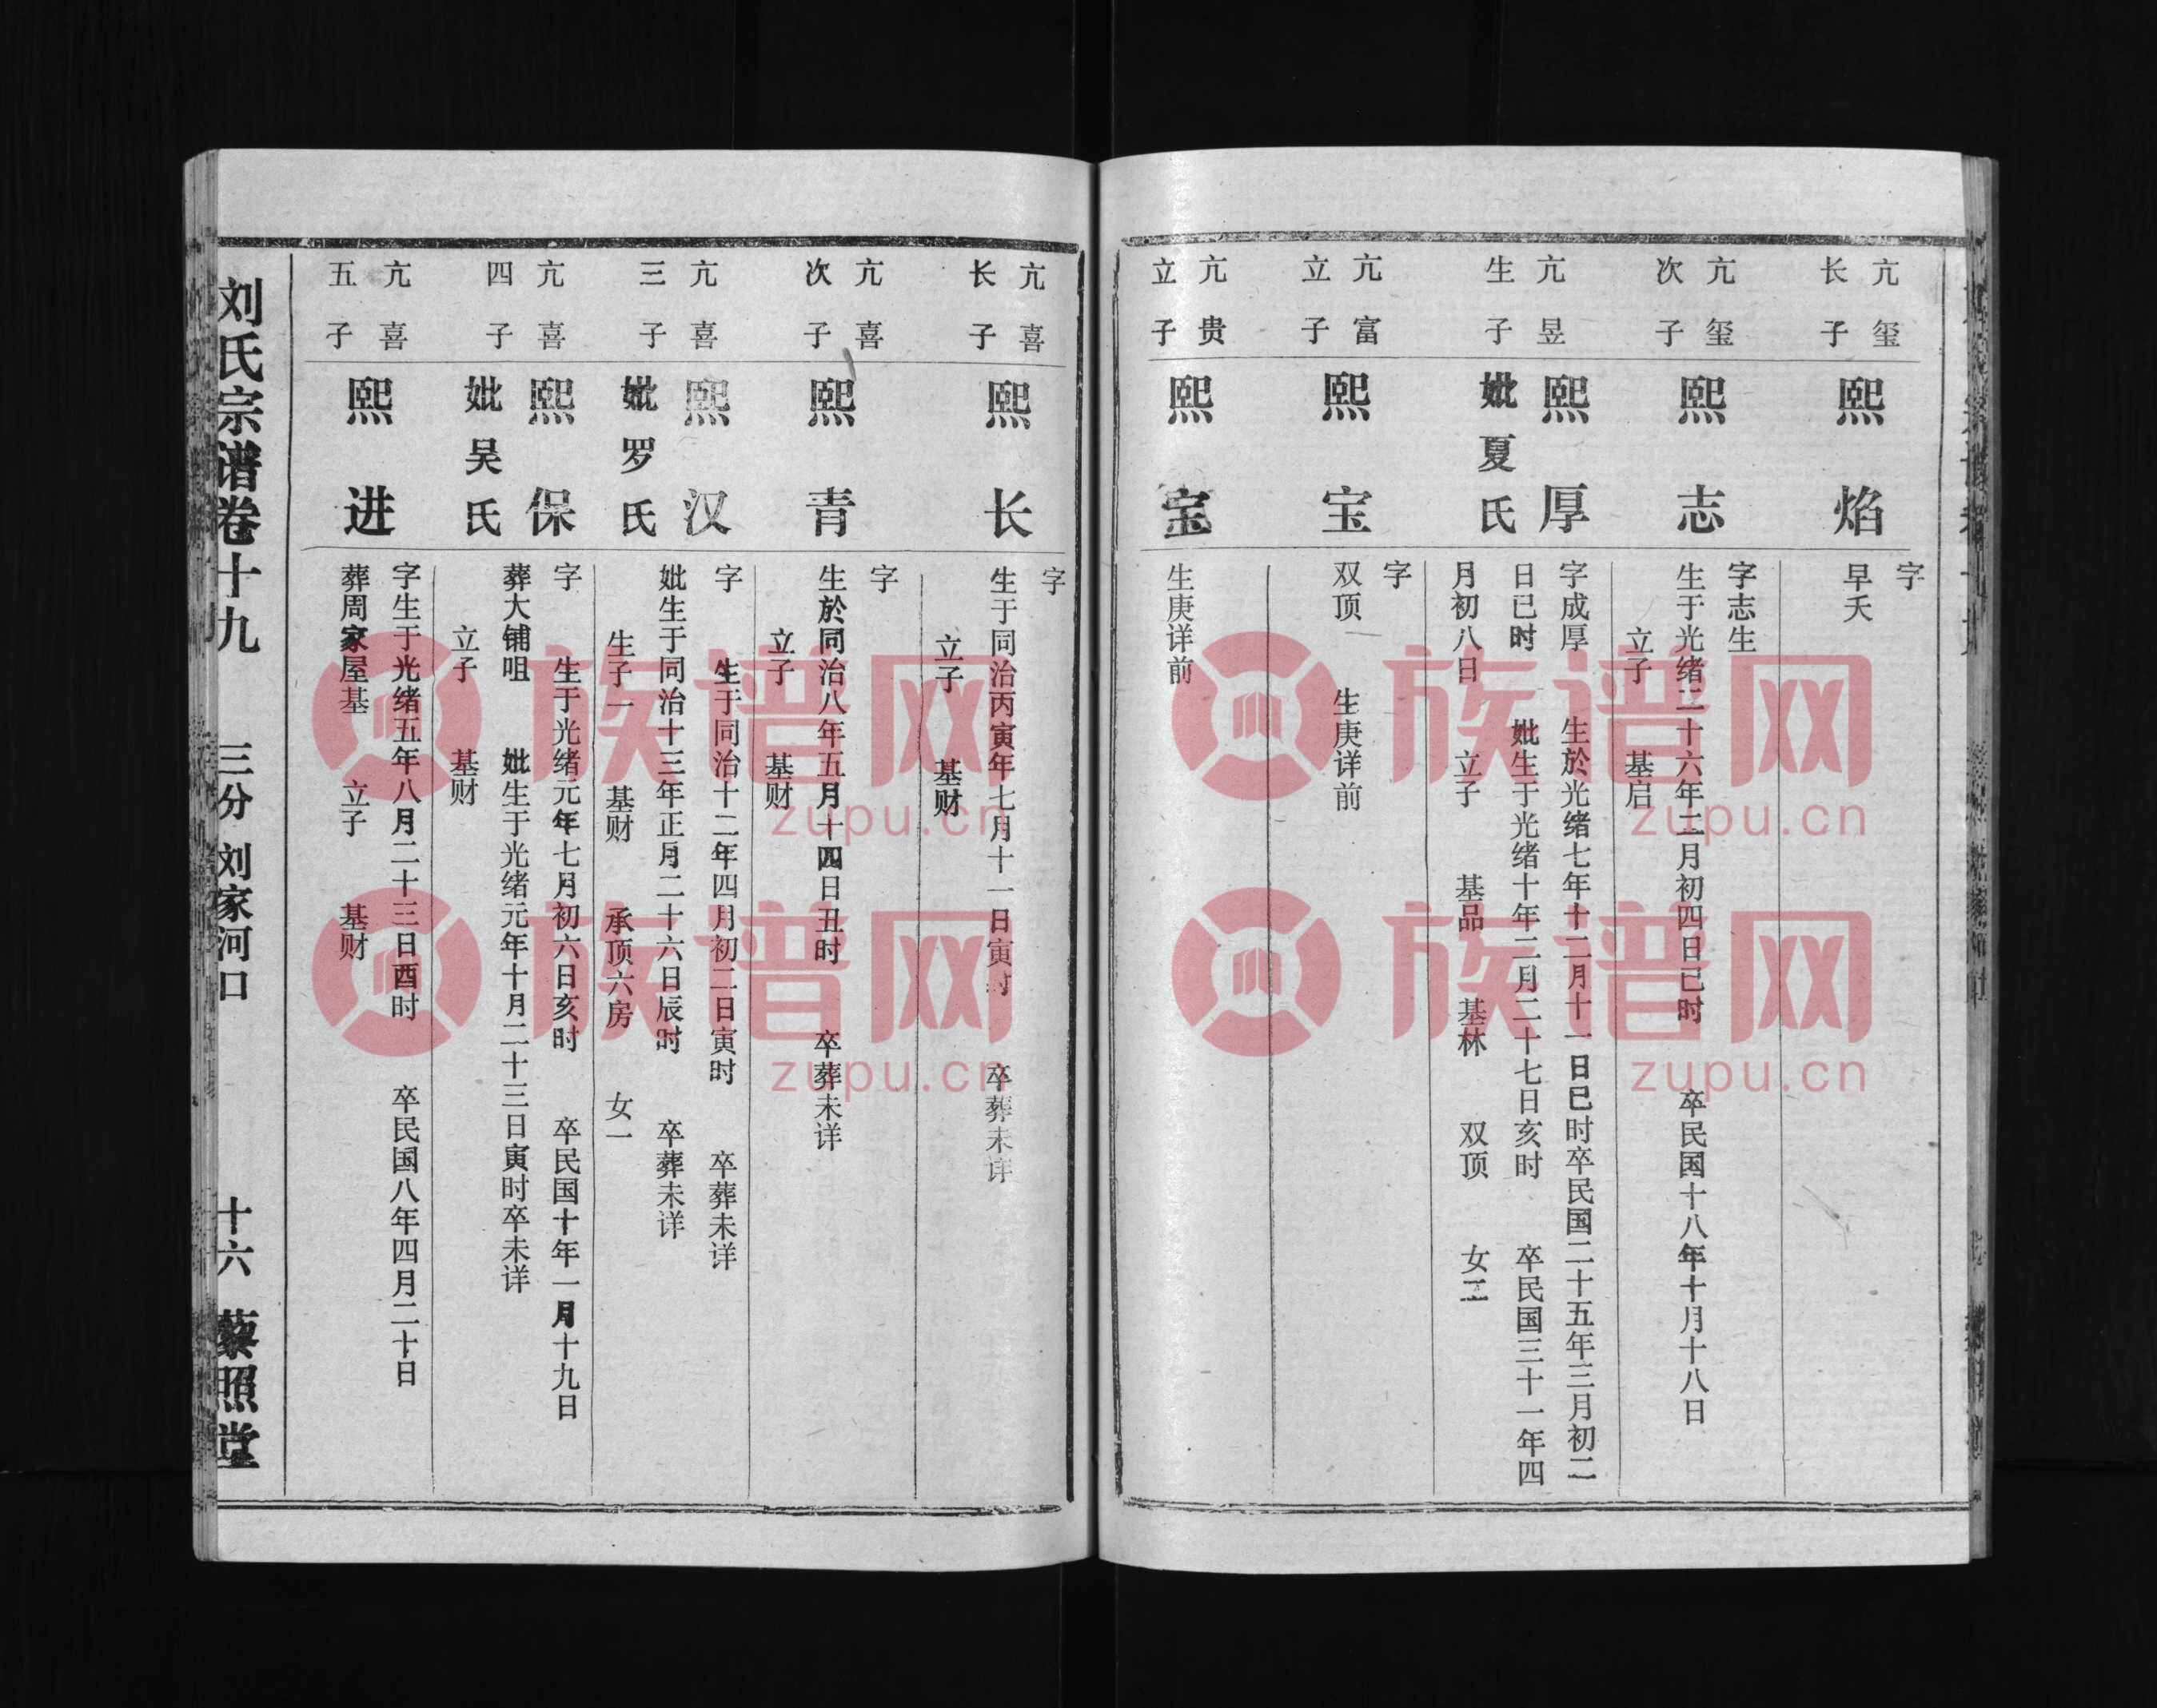 亢玺
长子
熙焰
字
早夭
亢玺
次子
熙志
字志生
生于光绪二十六年二月初四日已时 卒民国十八年十月十八日
立子 基启
亢昱
生子
熙厚
妣夏氏
字成厚 生於光绪七年十二月十一日巳时卒民国二十五年三月初二
日已时 妣生于光绪十年二月二十七日亥时 卒民国三十一年四
月初八日 立子 基品 基林 双顶 女二
亢富
立子
熙宝
字
双顶 生庚详前
亢贵
立子
熙宝
生庚详前
亢喜
长子
熙长
字
生于同治丙寅年七月十一日寅时 卒葬未详
立子 基财
亢喜
次子
熙青
字
生於同治八年五月十四日丑时 卒葬未详
立子 基财
亢喜
三子
熙汉
妣罗氏
字 生于同治十二年四月初二日寅时 卒葬未详
妣生于同治十三年正月二十六日辰时 卒葬未详
生子一 基财 承顶六房 女一
亢喜
四子
熙保
妣吴氏
字 生于光绪元年七月初六日亥时 卒民国十年一月十九日
葬大铺咀 妣生于光绪元年十月二十三日寅时卒未详
立子 基财
亢喜
五子
熙进
字生于光绪五年八月二十三日酉时 卒民国八年四月二十日
葬周家屋基 立子 基财
刘氏宗谱卷十九 三分 刘家河口 十六 藜照堂
族谱网
zupu.cn
族谱网
zupu.cn
族谱网
zupu.cn
族谱网
zupu.cn